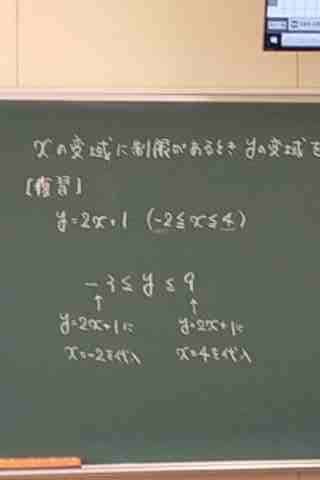 xの変域に制限があるときyの変域を
[復習]
y=2x+1 (-2≦x≦4)
-3≦y≦9
y=2x+1に y=2x+1に
x=-2を代入 x=4を代入